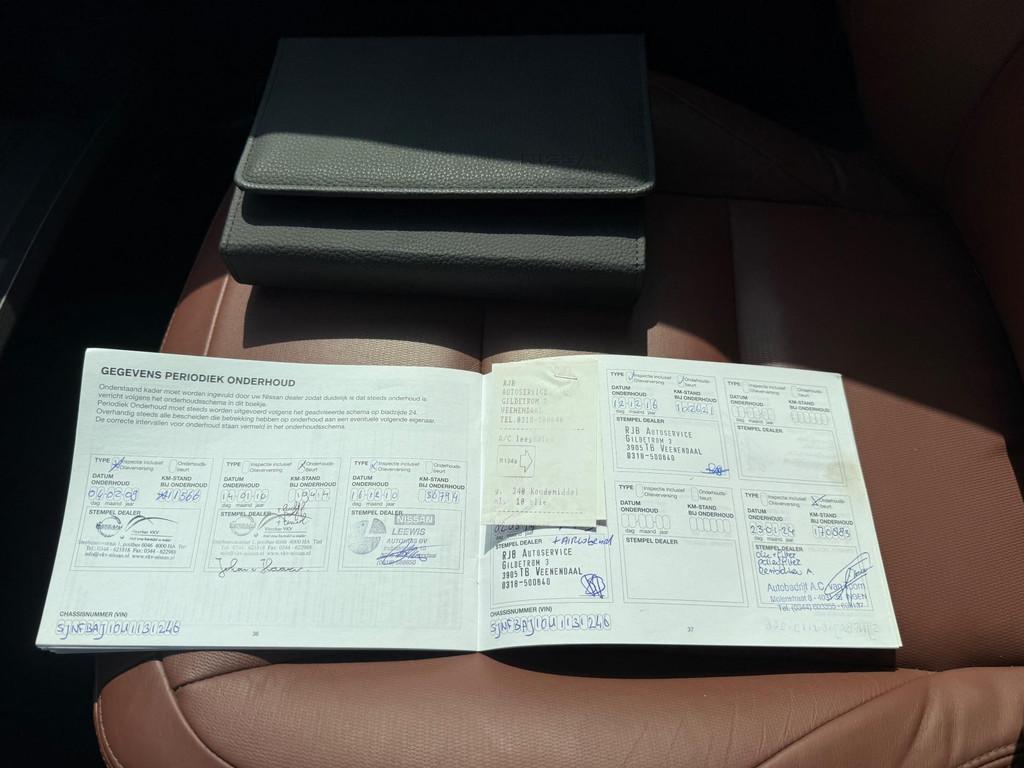 GEGEVENS PERIODIEK ONDERHOUD
Onderstaand kader moet worden ingevuld door uw Nissan dealer zodat duidelijk is dat steeds onderhoud is
verricht volgens het onderhoudsschema in dit boekje.
Periodiek Onderhoud moet steeds worden uitgevoerd volgens het geadviseerde schema op bladzijde 24.
Overhandig steeds alle bescheiden die betrekking hebben op onderhoud aan een eventuele volgende eigenaar.
De correcte intervallen voor onderhoud staan vermeld in het onderhoudsschema.
TYPE Inspectie inclusief Olieverversing Onderhouds-beurt
DATUM ONDERHOUD KM-STAND BIJ ONDERHOUD
04-02-09 11566
dag maand jaar
STEMPEL DEALER
TYPE Inspectie inclusief Olieverversing Onderhouds-beurt
DATUM ONDERHOUD KM-STAND BIJ ONDERHOUD
14-01-10
dag maand jaar
STEMPEL DEALER
TYPE Inspectie inclusief Olieverversing Onderhouds-beurt
DATUM ONDERHOUD KM-STAND BIJ ONDERHOUD
16-12-10 36794
dag maand jaar
STEMPEL DEALER
NISSAN
LEEWIS
CHASSISNUMMER (VIN)
SJNFBAJ10U1131246
36
RJB
AUTOSERVICE
GILDETROM 3
VEENENDAAL
TEL.0318-500640
A/C
R134a
240 Koudemiddel
10 olie
RJB AUTOSERVICE
GILDETROM 3
3905TB VEENENDAAL
0318-500640
TYPE Inspectie inclusief Olieverversing Onderhouds-beurt
DATUM ONDERHOUD KM-STAND BIJ ONDERHOUD
12-12-16
dag maand jaar
STEMPEL DEALER
RJB AUTOSERVICE
GILDETROM 3
3905TB VEENENDAAL
0318-500640
TYPE Inspectie inclusief Olieverversing Onderhouds-beurt
DATUM ONDERHOUD KM-STAND BIJ ONDERHOUD
STEMPEL DEALER
TYPE Inspectie inclusief Olieverversing Onderhouds-beurt
DATUM ONDERHOUD KM-STAND BIJ ONDERHOUD
dag maand jaar
STEMPEL DEALER
TYPE Inspectie inclusief Olieverversing Onderhouds-beurt
DATUM ONDERHOUD KM-STAND BIJ ONDERHOUD
23-01-24 170985
dag maand jaar
STEMPEL DEALER
olie + filter
pollenfilter
Autobedrijf A.C. van Toorn
CHASSISNUMMER (VIN)
SJNFBAJ10U1131246
37